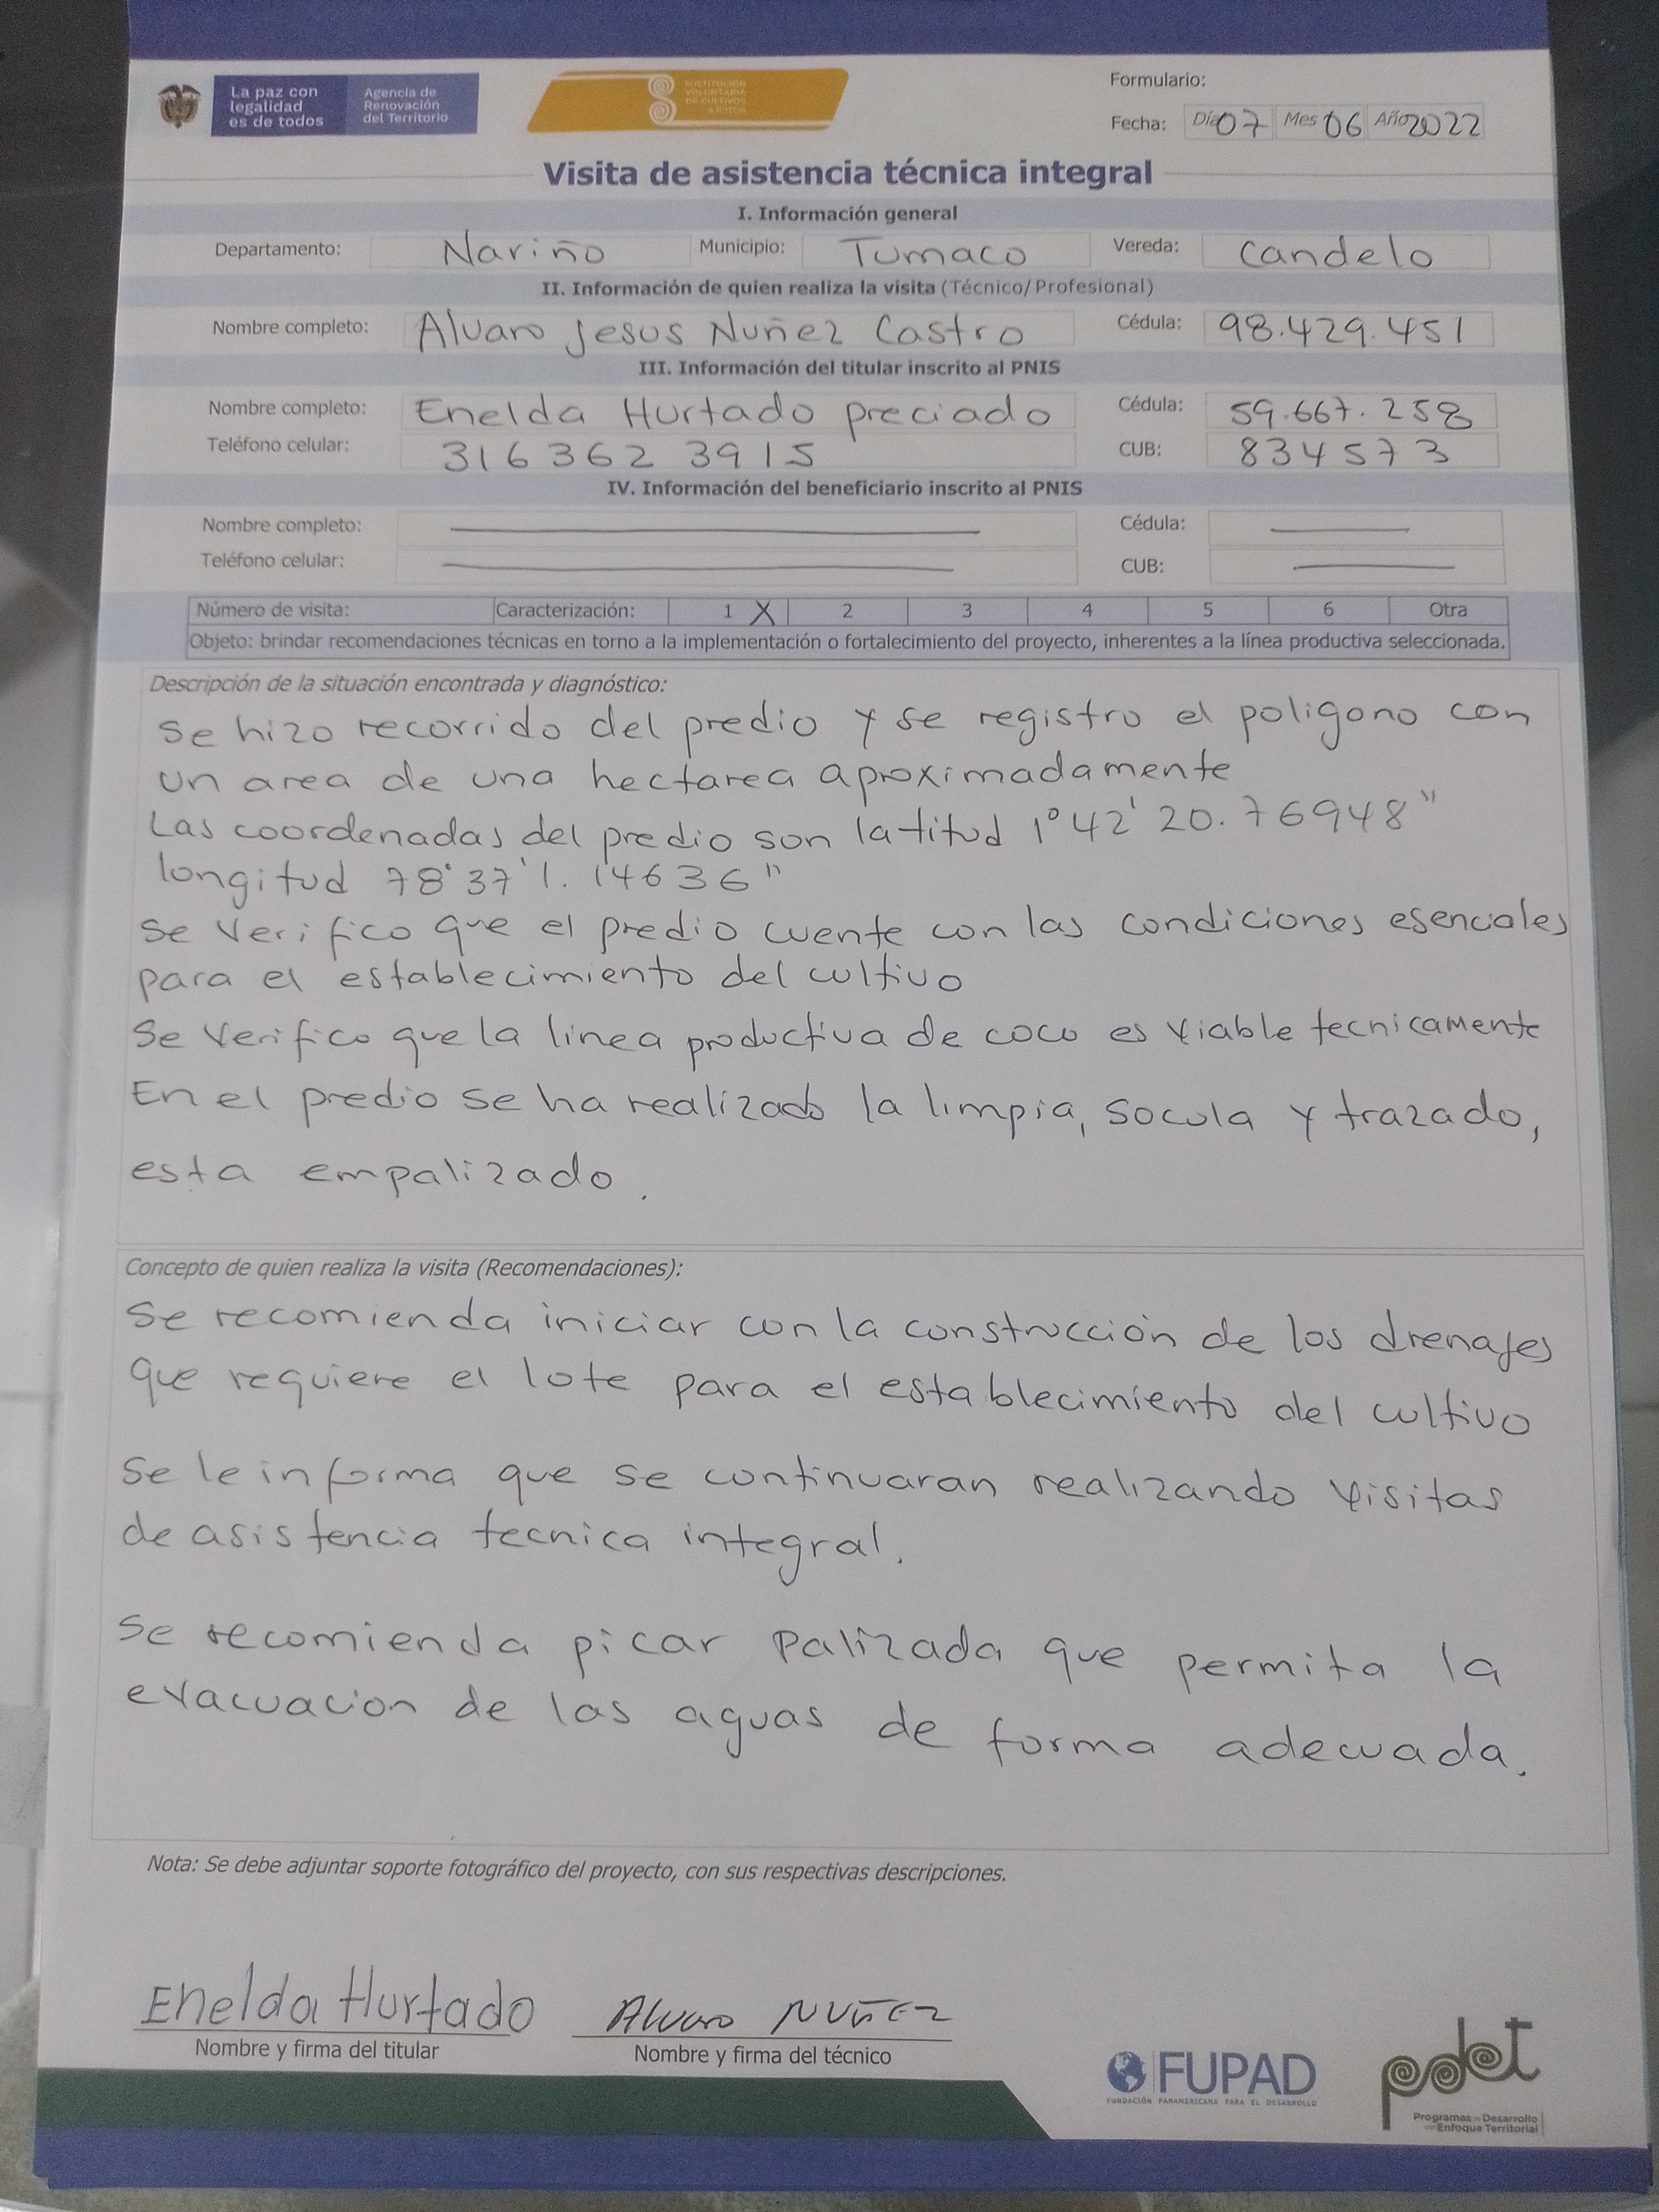 La paz con
legalidad
es de todos
Agencia de
Renovación
del Territorio
SUSTITUCIÓN
VOLUNTARIA
DE CULTIVOS
ILÍCITOS
Formulario:
Fecha: Día 07 Mes 06 Año 2022
Visita de asistencia técnica integral
I. Información general
Departamento: Nariño Municipio: Tumaco Vereda: Candelo
II. Información de quien realiza la visita (Técnico/Profesional)
Nombre completo: Alvaro Jesus Nuñez Castro Cédula: 98.429.451
III. Información del titular inscrito al PNIS
Nombre completo: Enelda Hurtado preciado Cédula: 59.667.258
Teléfono celular: 316 362 3915 CUB: 834573
IV. Información del beneficiario inscrito al PNIS
Nombre completo: Cédula:
Teléfono celular: CUB:
Número de visita: Caracterización: 1 X 2 3 4 5 6 Otra
Objeto: brindar recomendaciones técnicas en torno a la implementación o fortalecimiento del proyecto, inherentes a la línea productiva seleccionada.
Descripción de la situación encontrada y diagnóstico:
Se hizo recorrido del predio y se registro el poligono con
un area de una hectarea aproximadamente
Las coordenadas del predio son latitud 1°42'20.76948"
longitud 78°37'1.14636"
Se verifico que el predio cuente con las condiciones esenciales
para el establecimiento del cultivo
Se verifico que la linea productiva de coco es viable tecnicamente
En el predio se ha realizado la limpia, socula y trazado,
esta empalizado.
Concepto de quien realiza la visita (Recomendaciones):
Se recomienda iniciar con la construcción de los drenajes
que requiere el lote para el establecimiento del cultivo
Se le informa que se continuaran realizando visitas
de asistencia tecnica integral.
Se recomienda picar palizada que permita la
evacuacion de las aguas de forma adecuada.
Nota: Se debe adjuntar soporte fotográfico del proyecto, con sus respectivas descripciones.
Enelda Hurtado Alvaro NUÑEZ
Nombre y firma del titular Nombre y firma del técnico
FUPAD
FUNDACIÓN PANAMERICANA PARA EL DESARROLLO
pdet
Programas de Desarrollo
con Enfoque Territorial